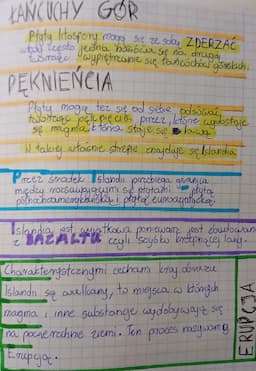 ŁAŃCUCHY GÓR
Płyty litosfery mogą się ze sobą ZDERZAĆ
wtedy często jedna nasuwa się na drugą
tworząc wypiętrzanie się łańcuchów górskich.
PĘKNIENCIA
Płyty mogą też się od siebie odsuwać
tworząc pęknięcia, przez które wydostaje
się magma, która staje się lawą
W takiej właśnie strefie znajduje się Islandia
Przez środek Islandii przebiega granica
między rozsuwającymi się płytami - płytą
północnoamerykańską i płytą euroazjatycką.
Islandia jest wyjątkowa ponieważ jest zbudowana
z BAZALTU czyli szybko krzepnącej lawy.
Charakterystycznymi cechami kraj obrazu
Islandii są wulkany, to miejsca w których
magma i inne substancje wydobywają się
na powierzchnie ziemi. Ten proces nazywamy
Erupcją.
ERUPCJA